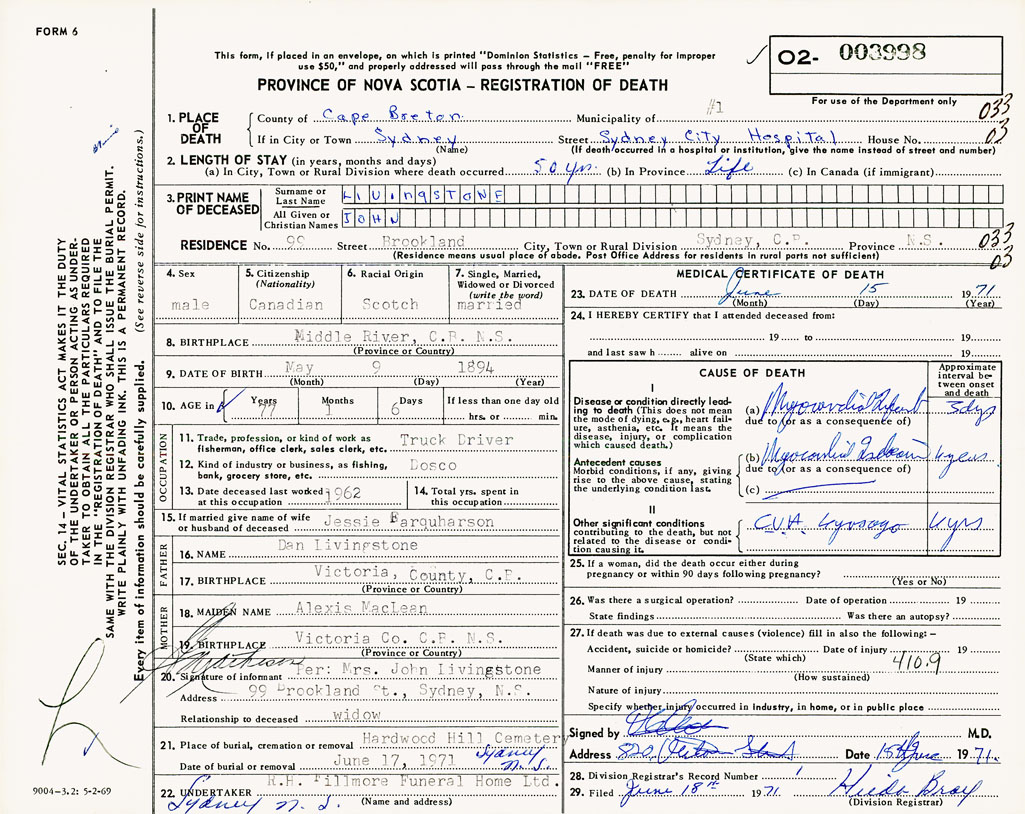 FORM 6
This form, if placed in an envelope, on which is printed "Dominion Statistics – Free, penalty for improper
use $50," and properly addressed will pass through the mail "FREE"
PROVINCE OF NOVA SCOTIA – REGISTRATION OF DEATH
02- 003998
For use of the Department only
#1
033
03
1. PLACE OF DEATH
County of Cape Breton Municipality of
If in City or Town Sydney Street Sydney City Hospital House No.
(Name) (If death occurred in a hospital or institution, give the name instead of street and number)
2. LENGTH OF STAY (in years, months and days)
(a) In City, Town or Rural Division where death occurred 50 yrs. (b) In Province Life (c) In Canada (if immigrant)
3. PRINT NAME OF DECEASED
Surname or Last Name LIVINGSTONE
All Given or Christian Names JOHN
RESIDENCE No. 99 Street Brookland City, Town or Rural Division Sydney, C.B. Province N.S.
(Residence means usual place of abode. Post Office Address for residents in rural parts not sufficient)
033
03
4. Sex
male
5. Citizenship
(Nationality)
Canadian
6. Racial Origin
Scotch
7. Single, Married,
Widowed or Divorced
(write the word)
married
8. BIRTHPLACE Middle River, C.B. N.S.
(Province or Country)
9. DATE OF BIRTH May 9 1894
(Month) (Day) (Year)
10. AGE in Years Months Days If less than one day old
77 1 6 hrs. or min.
OCCUPATION
11. Trade, profession, or kind of work as Truck Driver
fisherman, office clerk, sales clerk, etc.
12. Kind of industry or business, as fishing, Dosco
bank, grocery store, etc.
13. Date deceased last worked 1962
at this occupation
14. Total yrs. spent in
this occupation
15. If married give name of wife
or husband of deceased Jessie Farquharson
FATHER
16. NAME Dan Livingstone
17. BIRTHPLACE Victoria, County, C.B.
(Province or Country)
MOTHER
18. MAIDEN NAME Alexis MacLean
19. BIRTHPLACE Victoria Co. C.B. N.S.
(Province or Country)
20. Signature of informant Per: Mrs. John Livingstone
Address 99 Brookland St., Sydney, N.S.
Relationship to deceased widow
21. Place of burial, cremation or removal Hardwood Hill Cemetery
Sydney N.S.
Date of burial or removal June 17, 1971
22. UNDERTAKER R.H. Fillmore Funeral Home Ltd.
Sydney N.S. (Name and address)
MEDICAL CERTIFICATE OF DEATH
23. DATE OF DEATH June 15 1971
(Month) (Day) (Year)
24. I HEREBY CERTIFY that I attended deceased from:
19 to 19
and last saw h alive on 19
CAUSE OF DEATH
Approximate interval between onset and death
I
Disease or condition directly leading to death (This does not mean the mode of dying, e.g., heart failure, asthenia, etc. It means the disease, injury, or complication which caused death.)
(a) Myocardial Infarct 3 dys
due to (or as a consequence of)
Antecedent causes
Morbid conditions, if any, giving rise to the above cause, stating the underlying condition last.
(b) Myocardial
due to (or as a consequence of)
(c)
II
Other significant conditions
contributing to the death, but not related to the disease or condition causing it.
C.V.A. 4 yrs ago 4 yrs
25. If a woman, did the death occur either during
pregnancy or within 90 days following pregnancy?
(Yes or No)
26. Was there a surgical operation? Date of operation 19
State findings Was there an autopsy?
27. If death was due to external causes (violence) fill in also the following: –
Accident, suicide or homicide? Date of injury 19
(State which)
410.9
Manner of injury
(How sustained)
Nature of injury
Specify whether injury occurred in industry, in home, or in public place
Signed by M.D.
Address Date 1971.
28. Division Registrar's Record Number
29. Filed June 18th 1971 Hilda Bray
(Division Registrar)
SEC. 14 – VITAL STATISTICS ACT MAKES IT THE DUTY
OF THE UNDERTAKER OR PERSON ACTING AS UNDER-
TAKER TO OBTAIN ALL THE PARTICULARS REQUIRED
IN THE "REGISTRATION OF DEATH" AND TO FILE THE
SAME WITH THE DIVISION REGISTRAR WHO SHALL ISSUE THE BURIAL PERMIT.
WRITE PLAINLY WITH UNFADING INK. THIS IS A PERMANENT RECORD.
Every item of information should be carefully supplied. (See reverse side for instructions.)
9004-3.2: 5-2-69